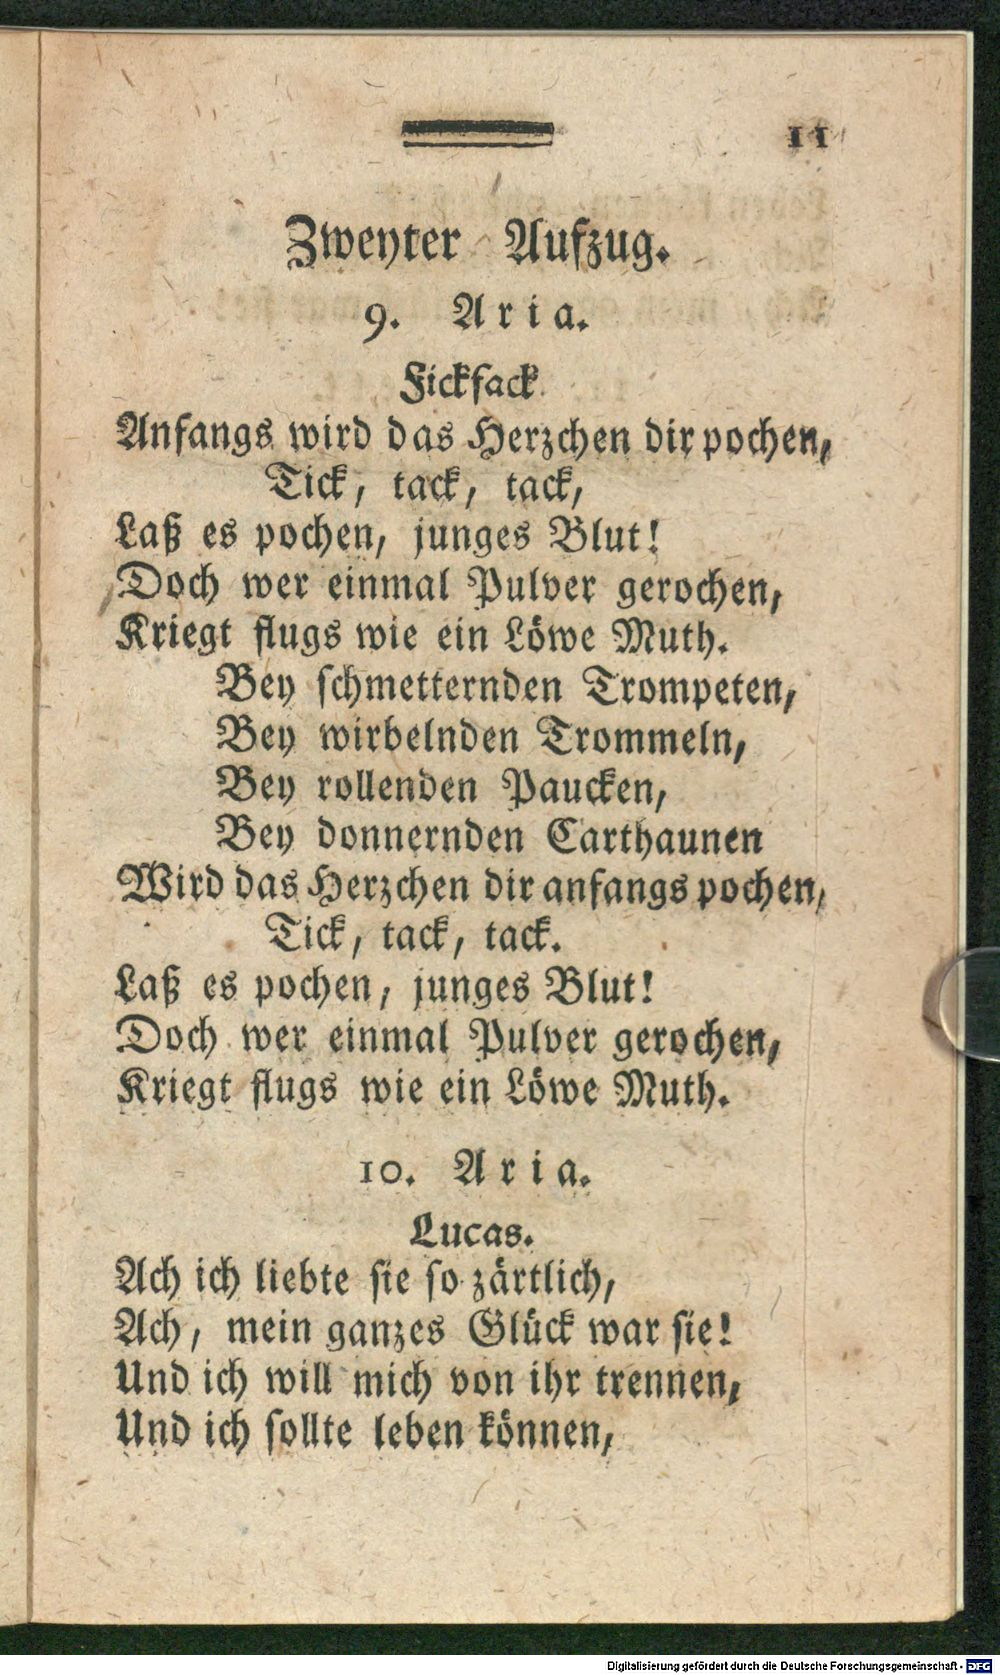 11
Zweyter Aufzug.
9. Aria.
Fickfack
Anfangs wird das Herzchen dir pochen,
Tick, tack, tack,
Laß es pochen, junges Blut!
Doch wer einmal Pulver gerochen,
Kriegt flugs wie ein Löwe Muth.
Bey schmetternden Trompeten,
Bey wirbelnden Trommeln,
Bey rollenden Paucken,
Bey donnernden Carthaunen
Wird das Herzchen dir anfangs pochen,
Tick, tack, tack.
Laß es pochen, junges Blut!
Doch wer einmal Pulver gerochen,
Kriegt flugs wie ein Löwe Muth.
10. Aria.
Lucas.
Ach ich liebte sie so zärtlich,
Ach, mein ganzes Glück war sie!
Und ich will mich von ihr trennen,
Und ich sollte leben können,
Digitalisierung gefördert durch die Deutsche Forschungsgemeinschaft - DFG